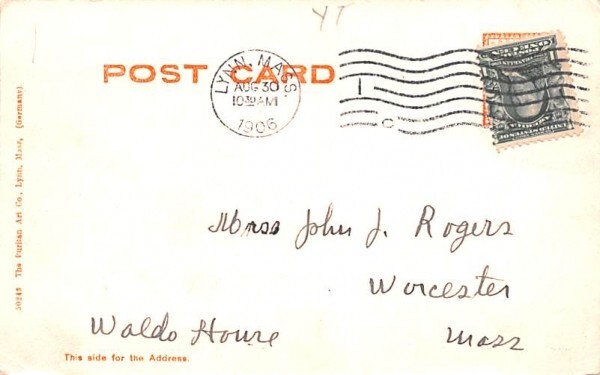 YT
POST CARD
LYNN, MASS.
AUG 30
1030 AM
1906
1
C
POSTAGE
ONE CENT
UNITED STATES OF
AMERICA
Mrss John J. Rogers
Worcester
Waldo House
Mass
This side for the Address.
50243 The Puritan Art Co., Lynn, Mass, (Germany).